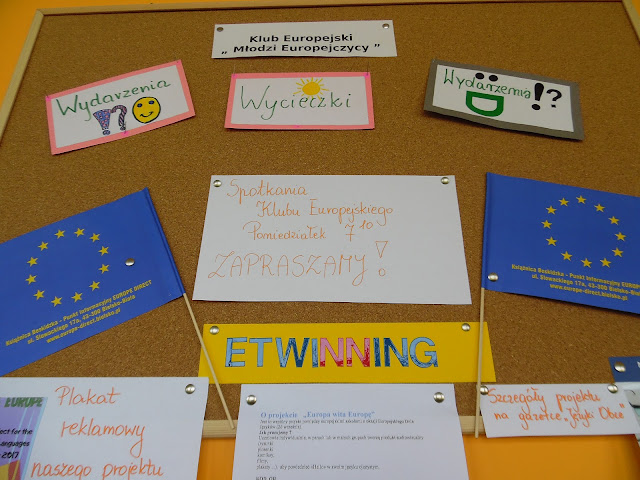 Klub Europejski
„ Młodzi Europejczycy ”
Wydarzenia
!?
Wycieczki
Wydarzenia
!?
Spotkania
Klubu Europejskiego
Poniedziałek 7¹⁰
ZAPRASZAMY !
Książnica Beskidzka - Punkt Informacyjny EUROPE DIRECT
ul. Słowackiego 17a, 43-300 Bielsko-Biała
www.europe-direct.bielsko.pl
Książnica Beskidzka - Punkt Informacyjny EUROPE DIRECT
ul. Słowackiego 17a, 43-300 Bielsko-Biała
www.europe-direct.bielsko.pl
ETWINNING
Plakat
reklamowy
naszego projektu
O projekcie „Europa wita Europę”
Szczegóły projektu
na gazetce „Języki Obce”